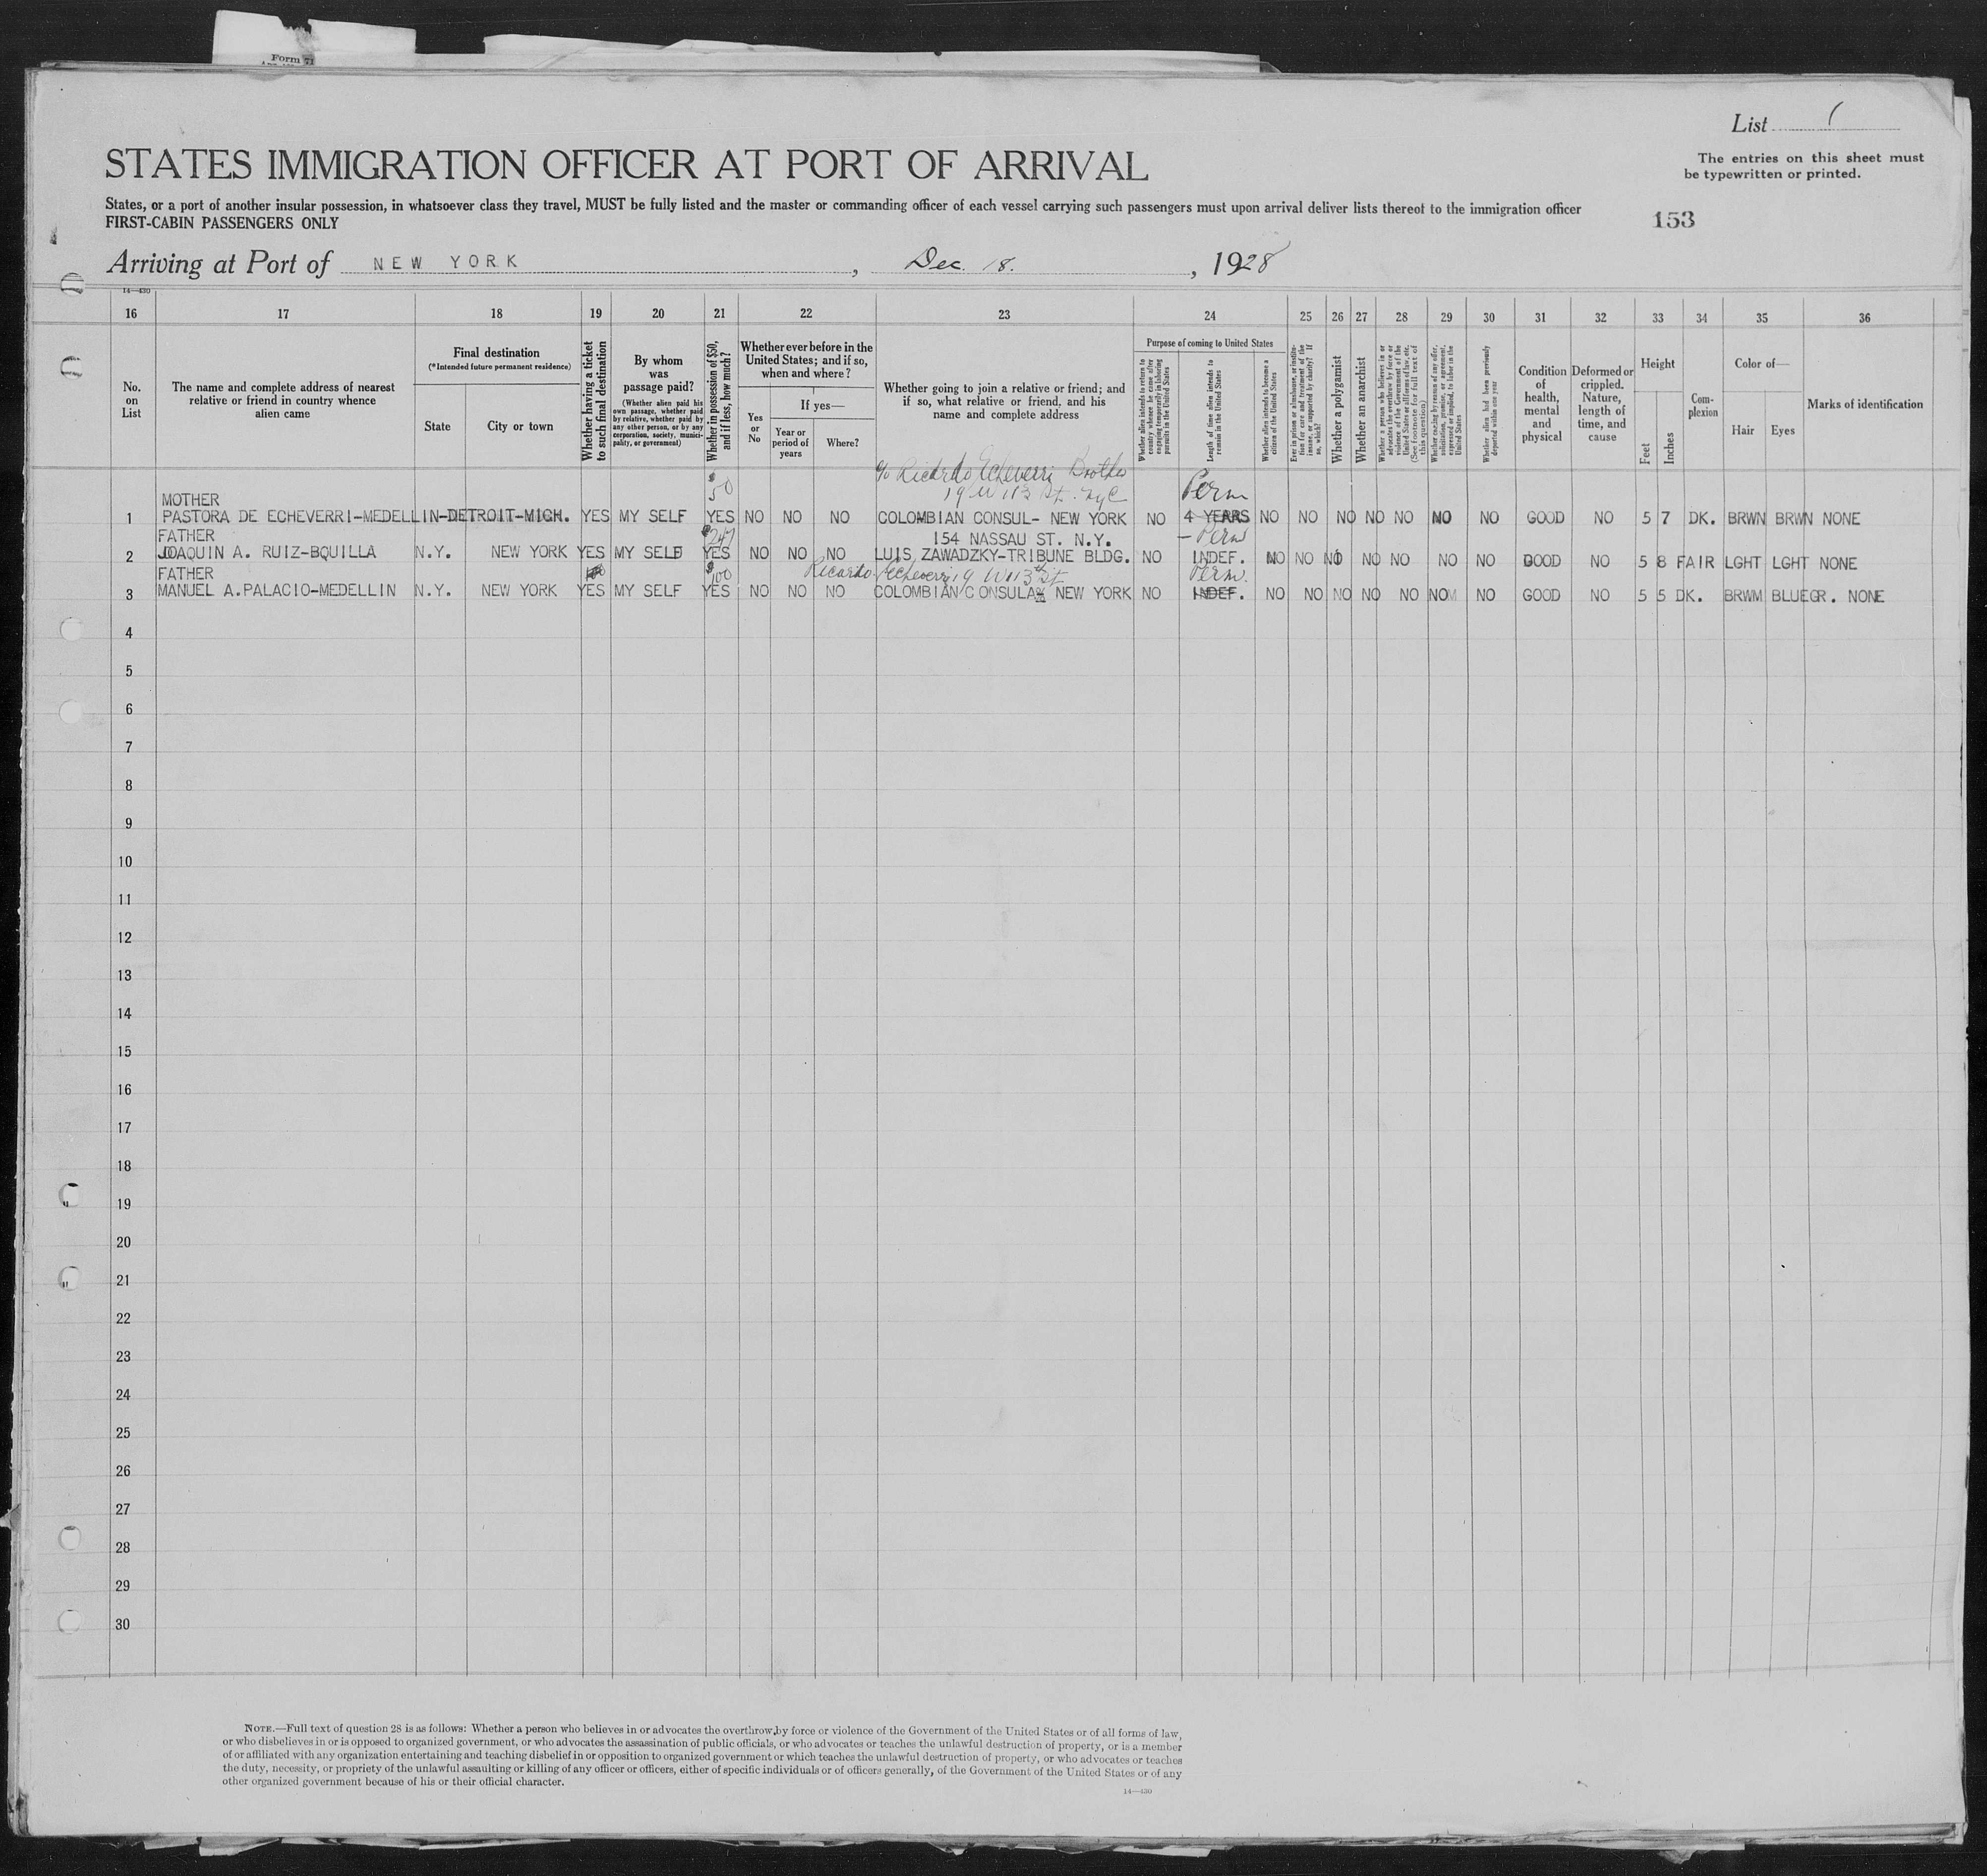 Form 71
List 1
STATES IMMIGRATION OFFICER AT PORT OF ARRIVAL
The entries on this sheet must
be typewritten or printed.
States, or a port of another insular possession, in whatsoever class they travel, MUST be fully listed and the master or commanding officer of each vessel carrying such passengers must upon arrival deliver lists thereof to the immigration officer
FIRST-CABIN PASSENGERS ONLY
153
Arriving at Port of NEW YORK, Dec. 18., 1928
14—430
16 17 18 19 20 21 22 23 24 25 26 27 28 29 30 31 32 33 34 35 36
No. on List
The name and complete address of nearest
relative or friend in country whence
alien came
Final destination
(*Intended future permanent residence)
State
City or town
Whether having a ticket
to such final destination
By whom
was
passage paid?
(Whether alien paid his
own passage, whether paid
by relative, whether paid by
any other person, or by any
corporation, society, munici-
pality, or government)
Whether in possession of $50,
and if less, how much?
Whether ever before in the
United States; and if so,
when and where?
Yes
or
No
If yes—
Year or
period of
years
Where?
Whether going to join a relative or friend; and
if so, what relative or friend, and his
name and complete address
Purpose of coming to United States
Whether alien intends to return to
country whence he came after
engaging temporarily in laboring
pursuits in the United States
Length of time alien intends to
remain in the United States
Whether alien intends to become a
citizen of the United States
Ever in prison or almshouse, or institu-
tion for care and treatment of the
insane, or supported by charity? If
so, which?
Whether a polygamist
Whether an anarchist
Whether a person who believes in or
advocates the overthrow by force or
violence of the Government of the
United States or all forms of law, etc.
(See footnote for full text of
this question)
Whether coming by reason of any offer,
solicitation, promise, or agreement,
expressed or implied, to labor in the
United States
Whether alien had been previously
deported within one year
Condition
of
health,
mental
and
physical
Deformed or
crippled.
Nature,
length of
time, and
cause
Height
Feet
Inches
Com-
plexion
Color of—
Hair
Eyes
Marks of identification
c/o Ricardo Echeverri Brother
$50 19 W 113 St. NyC Perm
MOTHER
1 PASTORA DE ECHEVERRI-MEDELLIN-DETROIT-MICH. YES MY SELF YES NO NO NO COLOMBIAN CONSUL- NEW YORK NO 4 YEARS NO NO NO NO NO NO NO GOOD NO 5 7 DK. BRWN BRWN NONE
FATHER $247 154 NASSAU ST. N.Y. - Perm
2 JOAQUIN A. RUIZ-BQUILLA N.Y. NEW YORK YES MY SELF YES NO NO NO LUIS ZAWADZKY-TRIBUNE BLDG. NO INDEF. NO NO NO NO NO NO NO GOOD NO 5 8 FAIR LGHT LGHT NONE
FATHER $100 Ricardo Echeverri 19 W 113th St Perm.
3 MANUEL A.PALACIO-MEDELLIN N.Y. NEW YORK YES MY SELF YES NO NO NO COLOMBIAN CONSULA NEW YORK NO INDEF. NO NO NO NO NO NO NO GOOD NO 5 5 DK. BRWM BLUEGR. NONE
4
5
6
7
8
9
10
11
12
13
14
15
16
17
18
19
20
21
22
23
24
25
26
27
28
29
30
NOTE.—Full text of question 28 is as follows: Whether a person who believes in or advocates the overthrow by force or violence of the Government of the United States or of all forms of law,
or who disbelieves in or is opposed to organized government, or who advocates the assassination of public officials, or who advocates or teaches the unlawful destruction of property, or is a member
of or affiliated with any organization entertaining and teaching disbelief in or opposition to organized government or which teaches the unlawful destruction of property, or who advocates or teaches
the duty, necessity, or propriety of the unlawful assaulting or killing of any officer or officers, either of specific individuals or of officers generally, of the Government of the United States or of any
other organized government because of his or their official character.
14—430